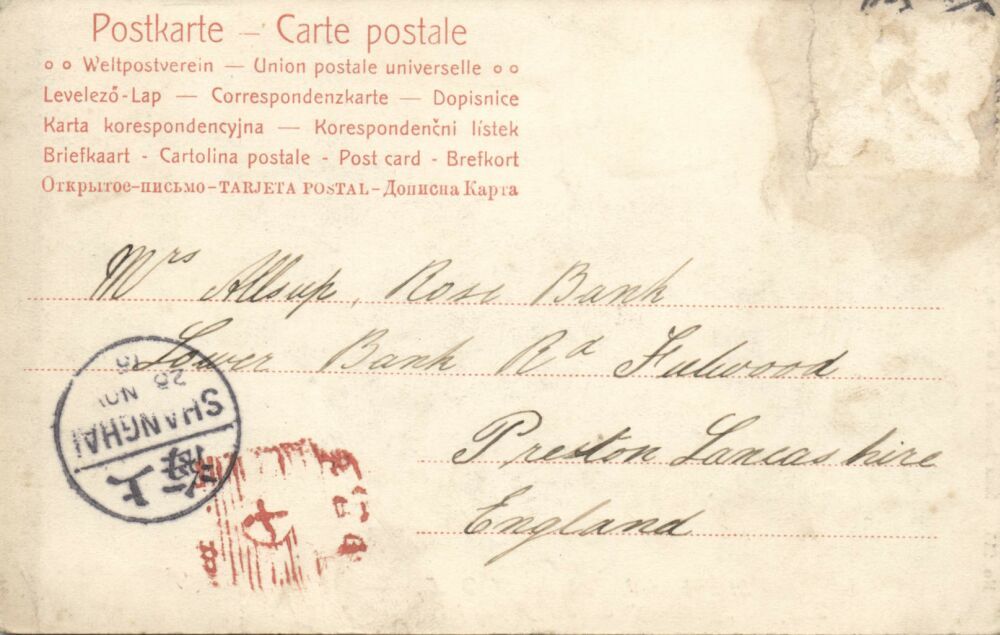 Postkarte — Carte postale
Weltpostverein — Union postale universelle
Levelező-Lap — Correspondenzkarte — Dopisnice
Karta korespondencyjna — Korespondenční lístek
Briefkaart - Cartolina postale - Post card - Brefkort
Открытое-письмо-TARJETA POSTAL-Дописна Карта
Mrs Allsup, Rose Bank
Lower Bank Rd Fulwood
Preston Lancashire
England
SHANGHAI
NOV
上海